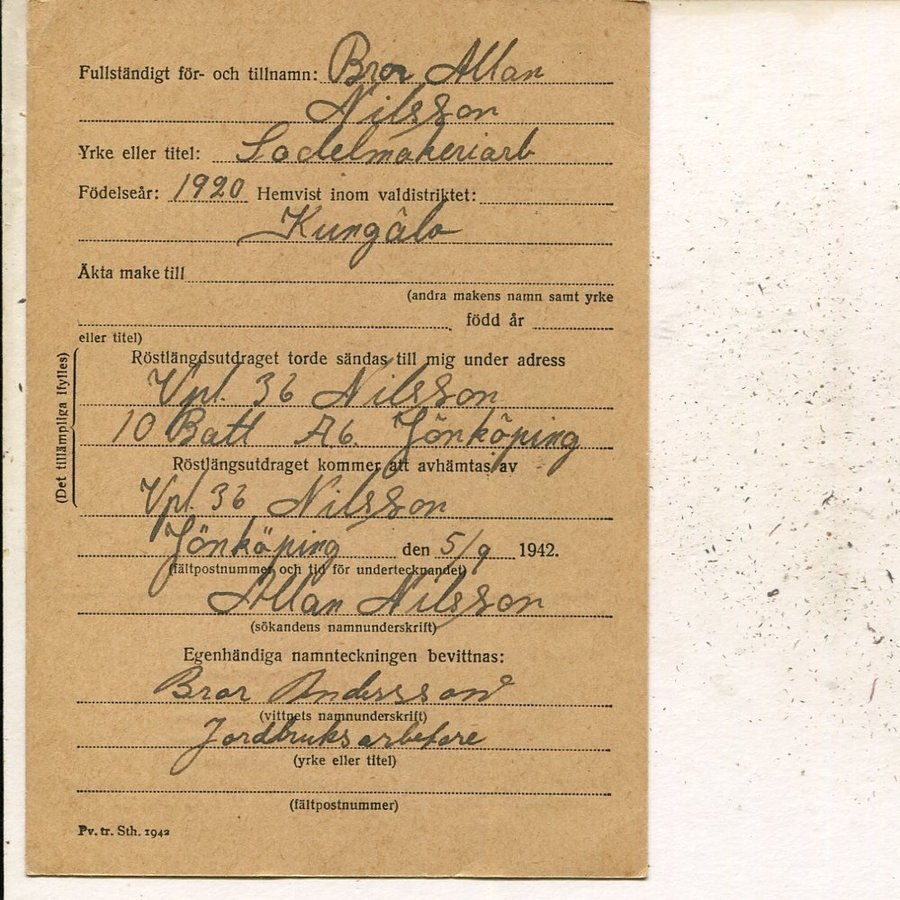 Fullständigt för- och tillnamn: Bror Allan
Nilsson
Yrke eller titel: Sadelmakeriarb
Födelseår: 1920 Hemvist inom valdistriktet:
Kungälv
Äkta make till
(andra makens namn samt yrke
född år
eller titel)
(Det tillämpliga ifylles)
Röstlängdsutdraget torde sändas till mig under adress
Vpl. 36 Nilsson
10 Batt A6. Jönköping
Röstlängsutdraget kommer att avhämtas av
Vpl. 36 Nilsson
Jönköping den 5/9 1942.
(fältpostnummer och tid för undertecknandet)
Allan Nilsson
(sökandens namnunderskrift)
Egenhändiga namnteckningen bevittnas:
Bror Andersson
(vittnets namnunderskrift)
Jordbruksarbetare
(yrke eller titel)
(fältpostnummer)
Pv. tr. Sth. 1942